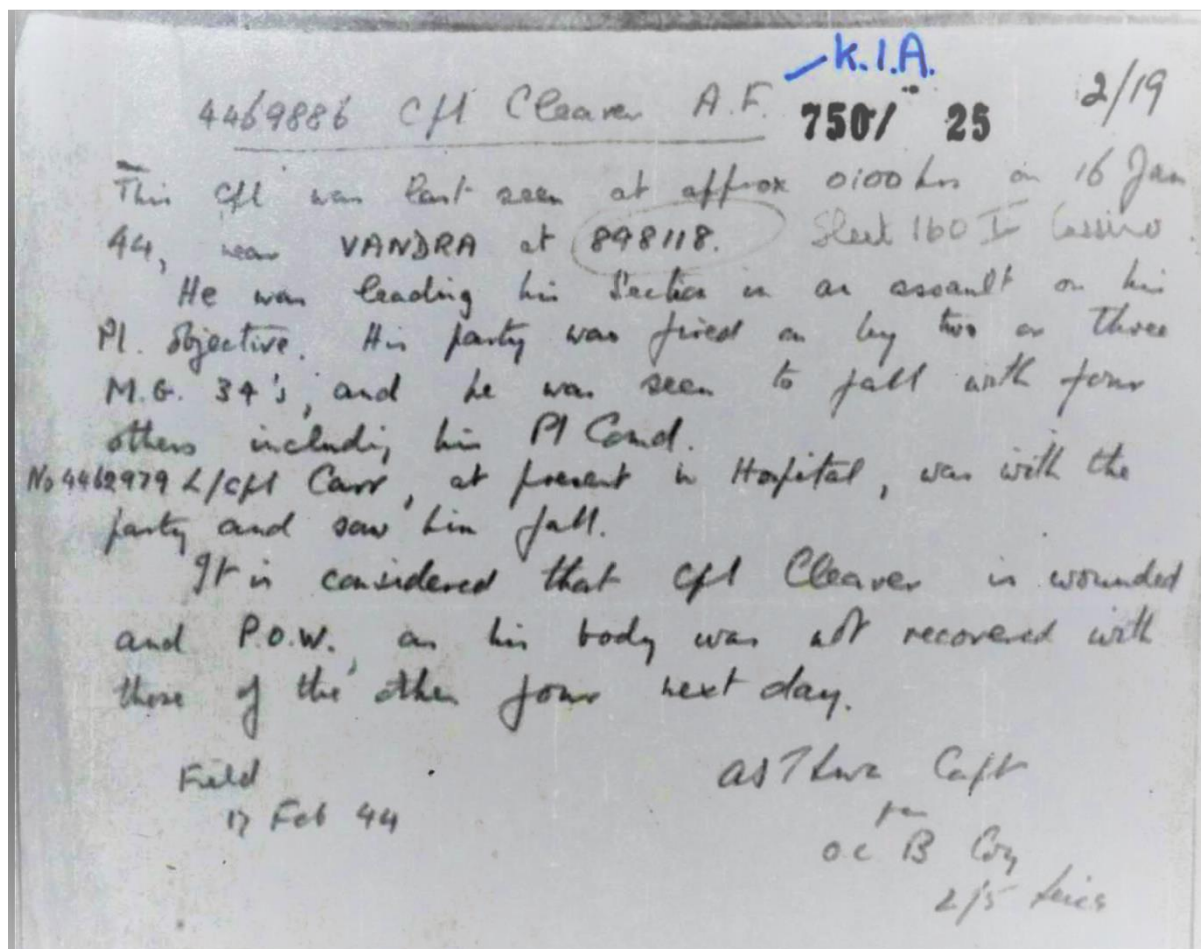 K.I.A.
4469886 Cpl Cleaver A.F. 750/ 25 2/19
This Cpl was last seen at approx 0100 hrs on 16 Jan
44, near VANDRA at 898118. Sheet 160 I Cassino.
He was leading his Section in an assault on his
Pl. objective. His party was fired on by two or three
M.G. 34's, and he was seen to fall with four
others including his Pl Comd.
No 4462979 L/Cpl Carr, at present in Hospital, was with the
party and saw him fall.
It is considered that Cpl Cleaver is wounded
and P.O.W., as his body was not recovered with
those of the other four next day.
Field Capt
17 Feb 44 for
O.C B Coy
2/5 Leics